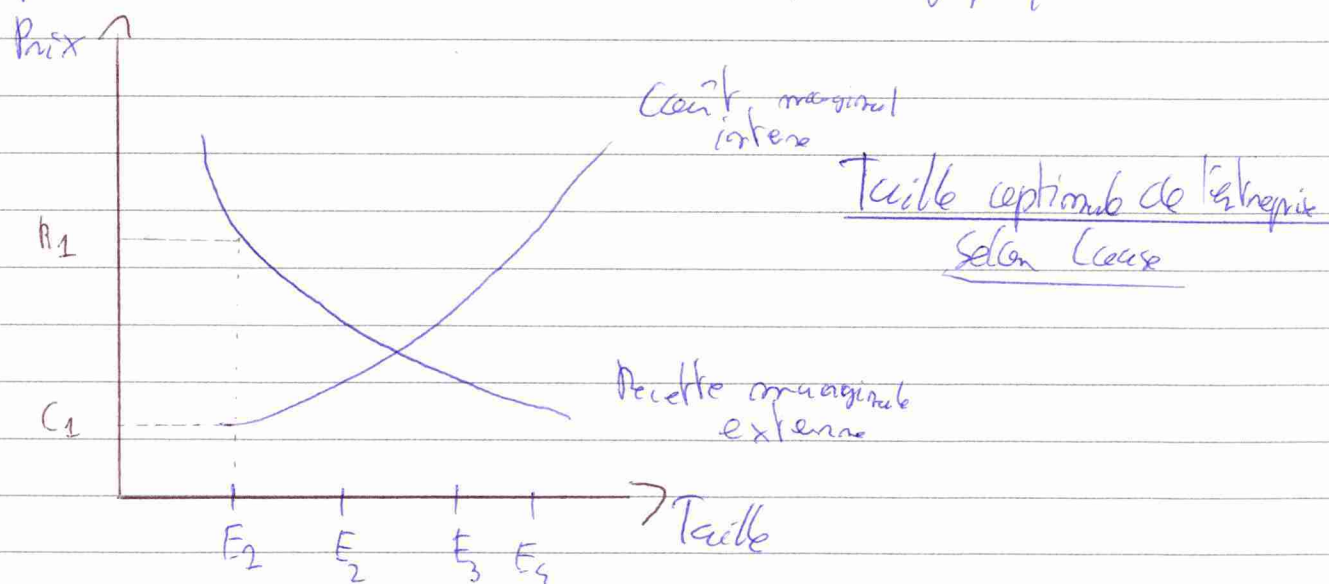 Prix
Coût marginal
interne
Taille optimale de l'entreprise
selon Coase
R1
Recette marginale
externe
C1
Taille
E1 E2 E3 E4